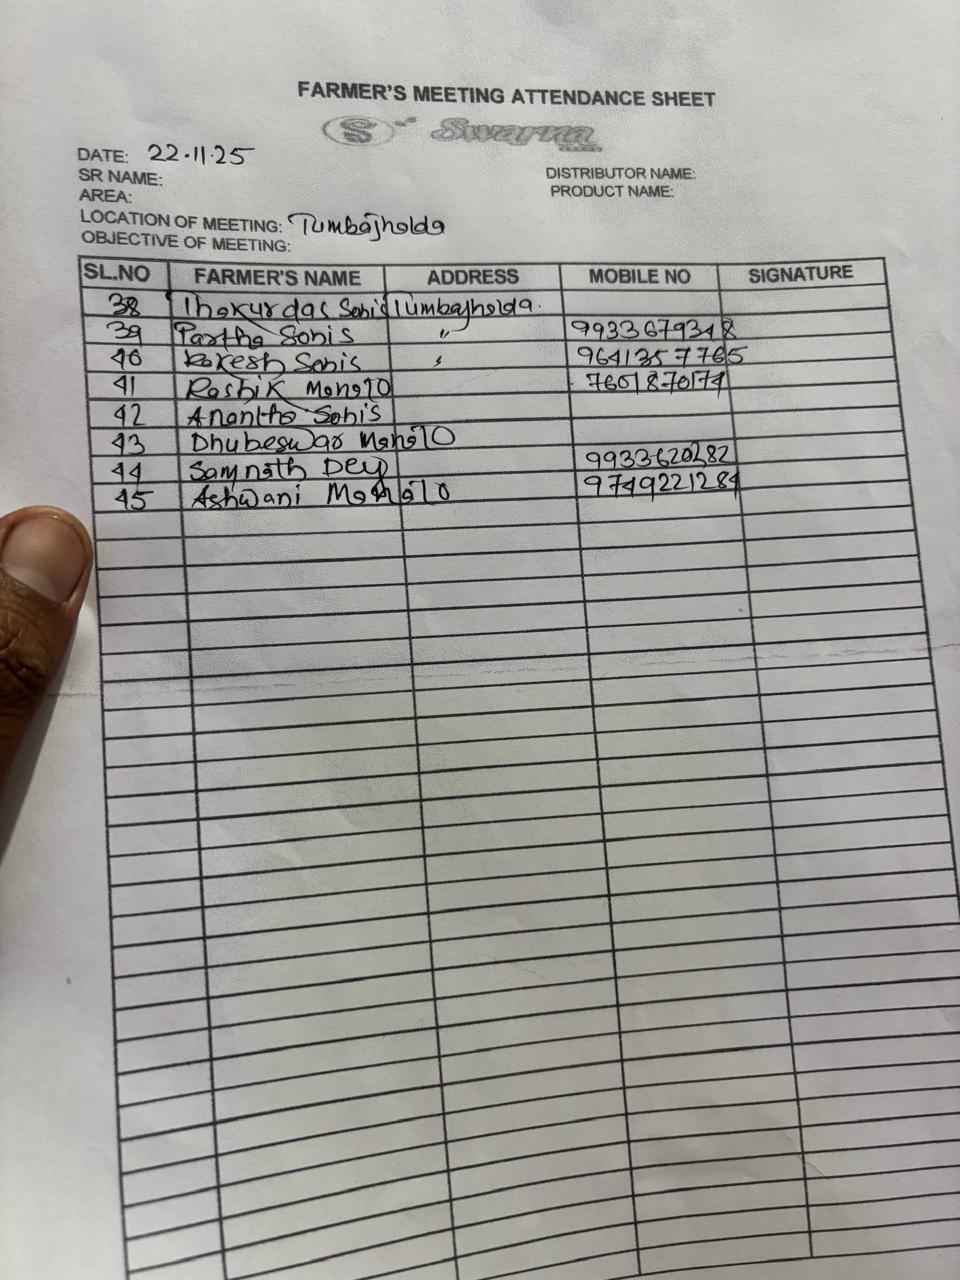 FARMER'S MEETING ATTENDANCE SHEET
S Swarna
DATE: 22.11.25
SR NAME:
DISTRIBUTOR NAME:
AREA:
PRODUCT NAME:
LOCATION OF MEETING: Tumbajholda
OBJECTIVE OF MEETING:
SL.NO FARMER'S NAME ADDRESS MOBILE NO SIGNATURE
38 Thakurdas Sohis Tumbajholda.
39 Partha Sohis " 9933679348
40 Rakesh Sohis " 9641357765
41 Rashik Mahato 7601870174
42 Anantha Sohis
43 Dhubeswar Mahato
44 Samnath Dey 9933620282
45 Ashwani Mahato 9749221284